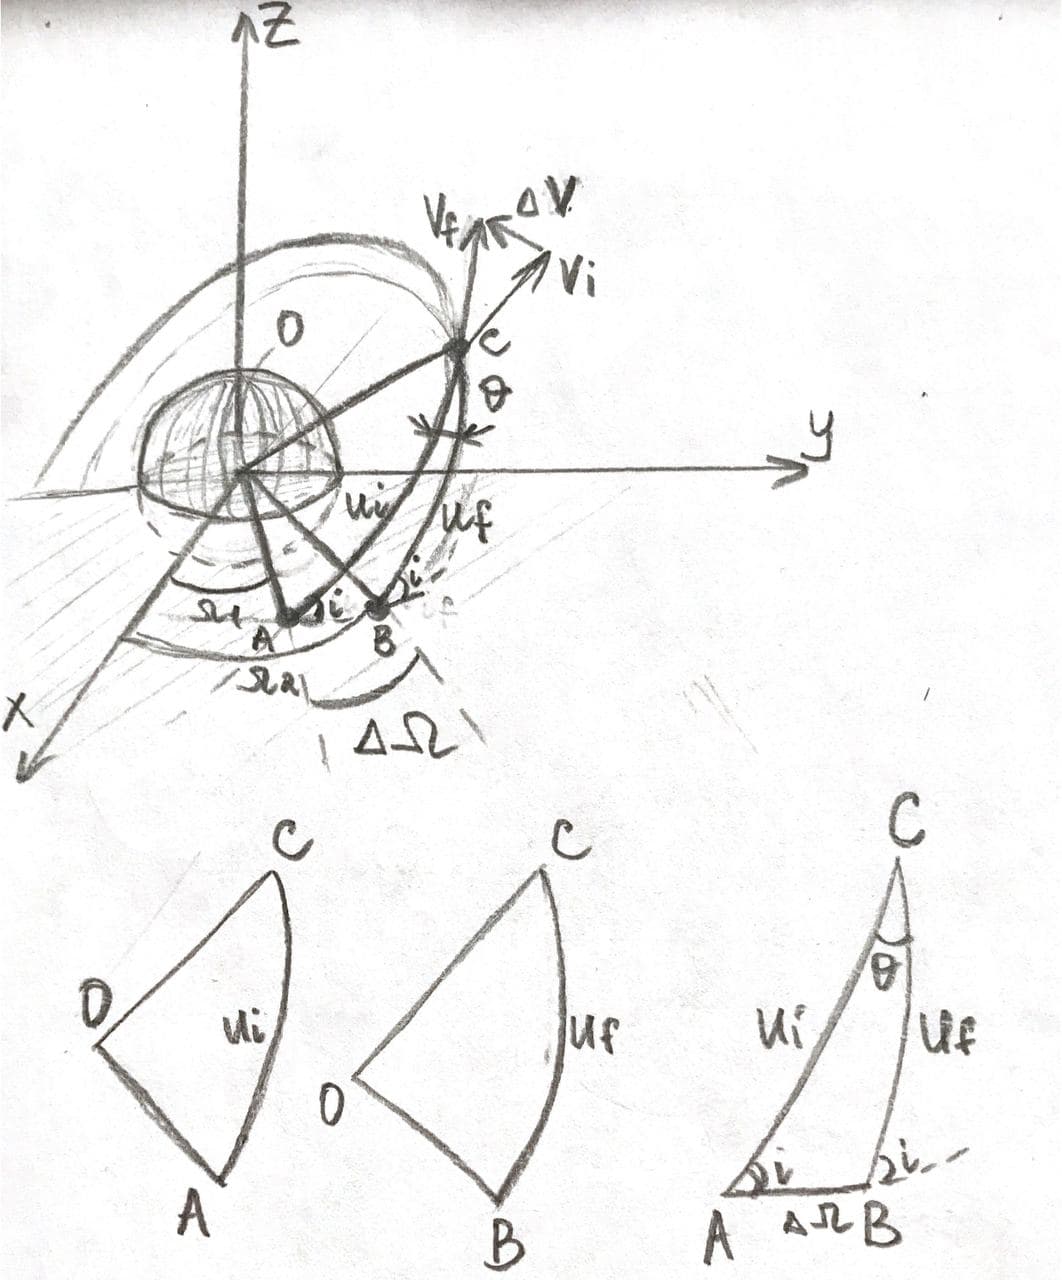 Z
Vf ΔV
Vi
O
C
θ
y
ui
uf
i
i
Ω1
A
B
Ω2
X
ΔΩ
C
O
ui
A
C
O
uf
B
C
θ
ui
uf
i
i
A
ΔΩ
B